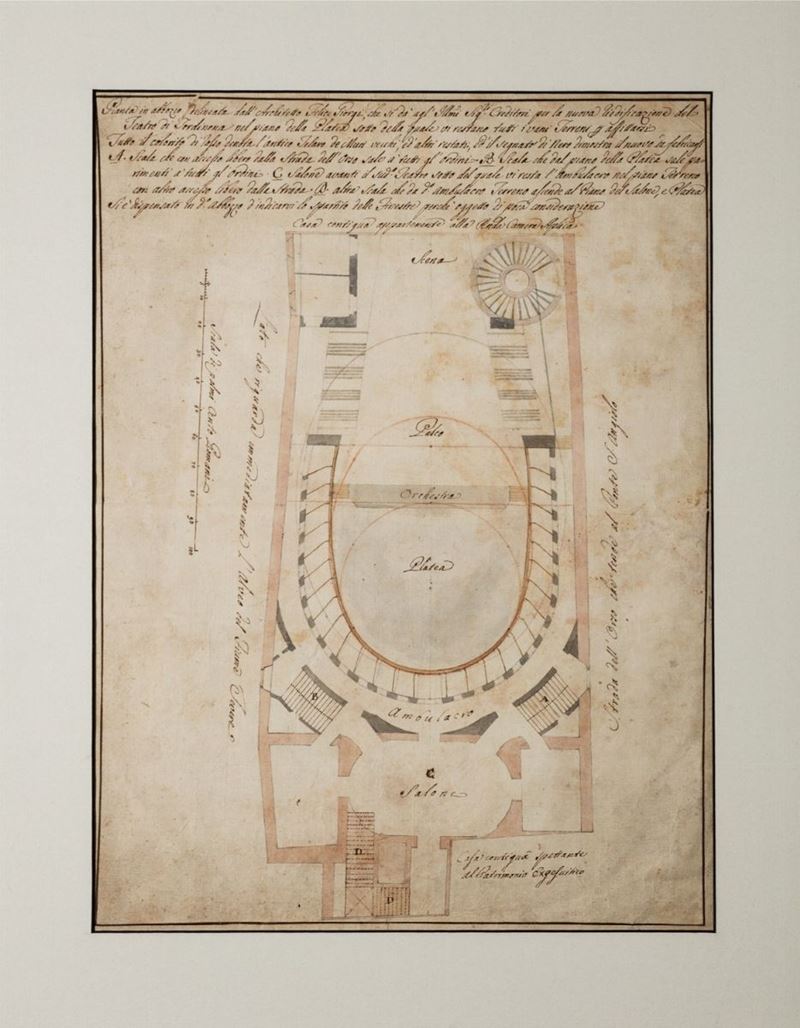 Pianta in abbozzo delineata dall'Architetto Felice Giorgi, che si dà agl' Illmi Sigri Creditori per la nuova riedificazione del
Teatro di Tordinona nel piano della Platea sotto della quale vi restano tutti i vani Terreni p affittarsi
Tutto il colorito di rosso dimostra l'antico Telaro de Muri vecchi, ed altri restati, ed il Segnato di Nero dimostra il nuovo da fabricarsi
A. Scala che con accesso libero dalla Strada dell' Orso sale a tutti gl' ordini B. Scala che dal piano della Platea sale pa-
rimenti a tutti gl' Ordini C Salone avanti il Sudo Teatro sotto del quale vi resta l'Ambulacro nel piano Terreno
con altro accesso libero dalla Strada D. altra Scala che da do ambulacro Terreno ascende al Piano del Salone, e Platea
Si è dispensato in do Abbozzo d'indicarvi lo spartito delle Finestre perché oggetto di poca considerazione
Casa contigua appartenente alla Rnda Camera Aplica
Scena
Scala di palmi cento Romani
10
20
30
40
50
60
70
80
90
100
Lato che riguarda immediatamente l'Alveo del Fiume Tevere
Strada dell' Orso che tende al Ponte S. Angiolo
Palco
Orchestra
Platea
B
A
Ambulacro
C
Salone
D
D
Casa contigua spettante
al Patrimonio Exgesuitico